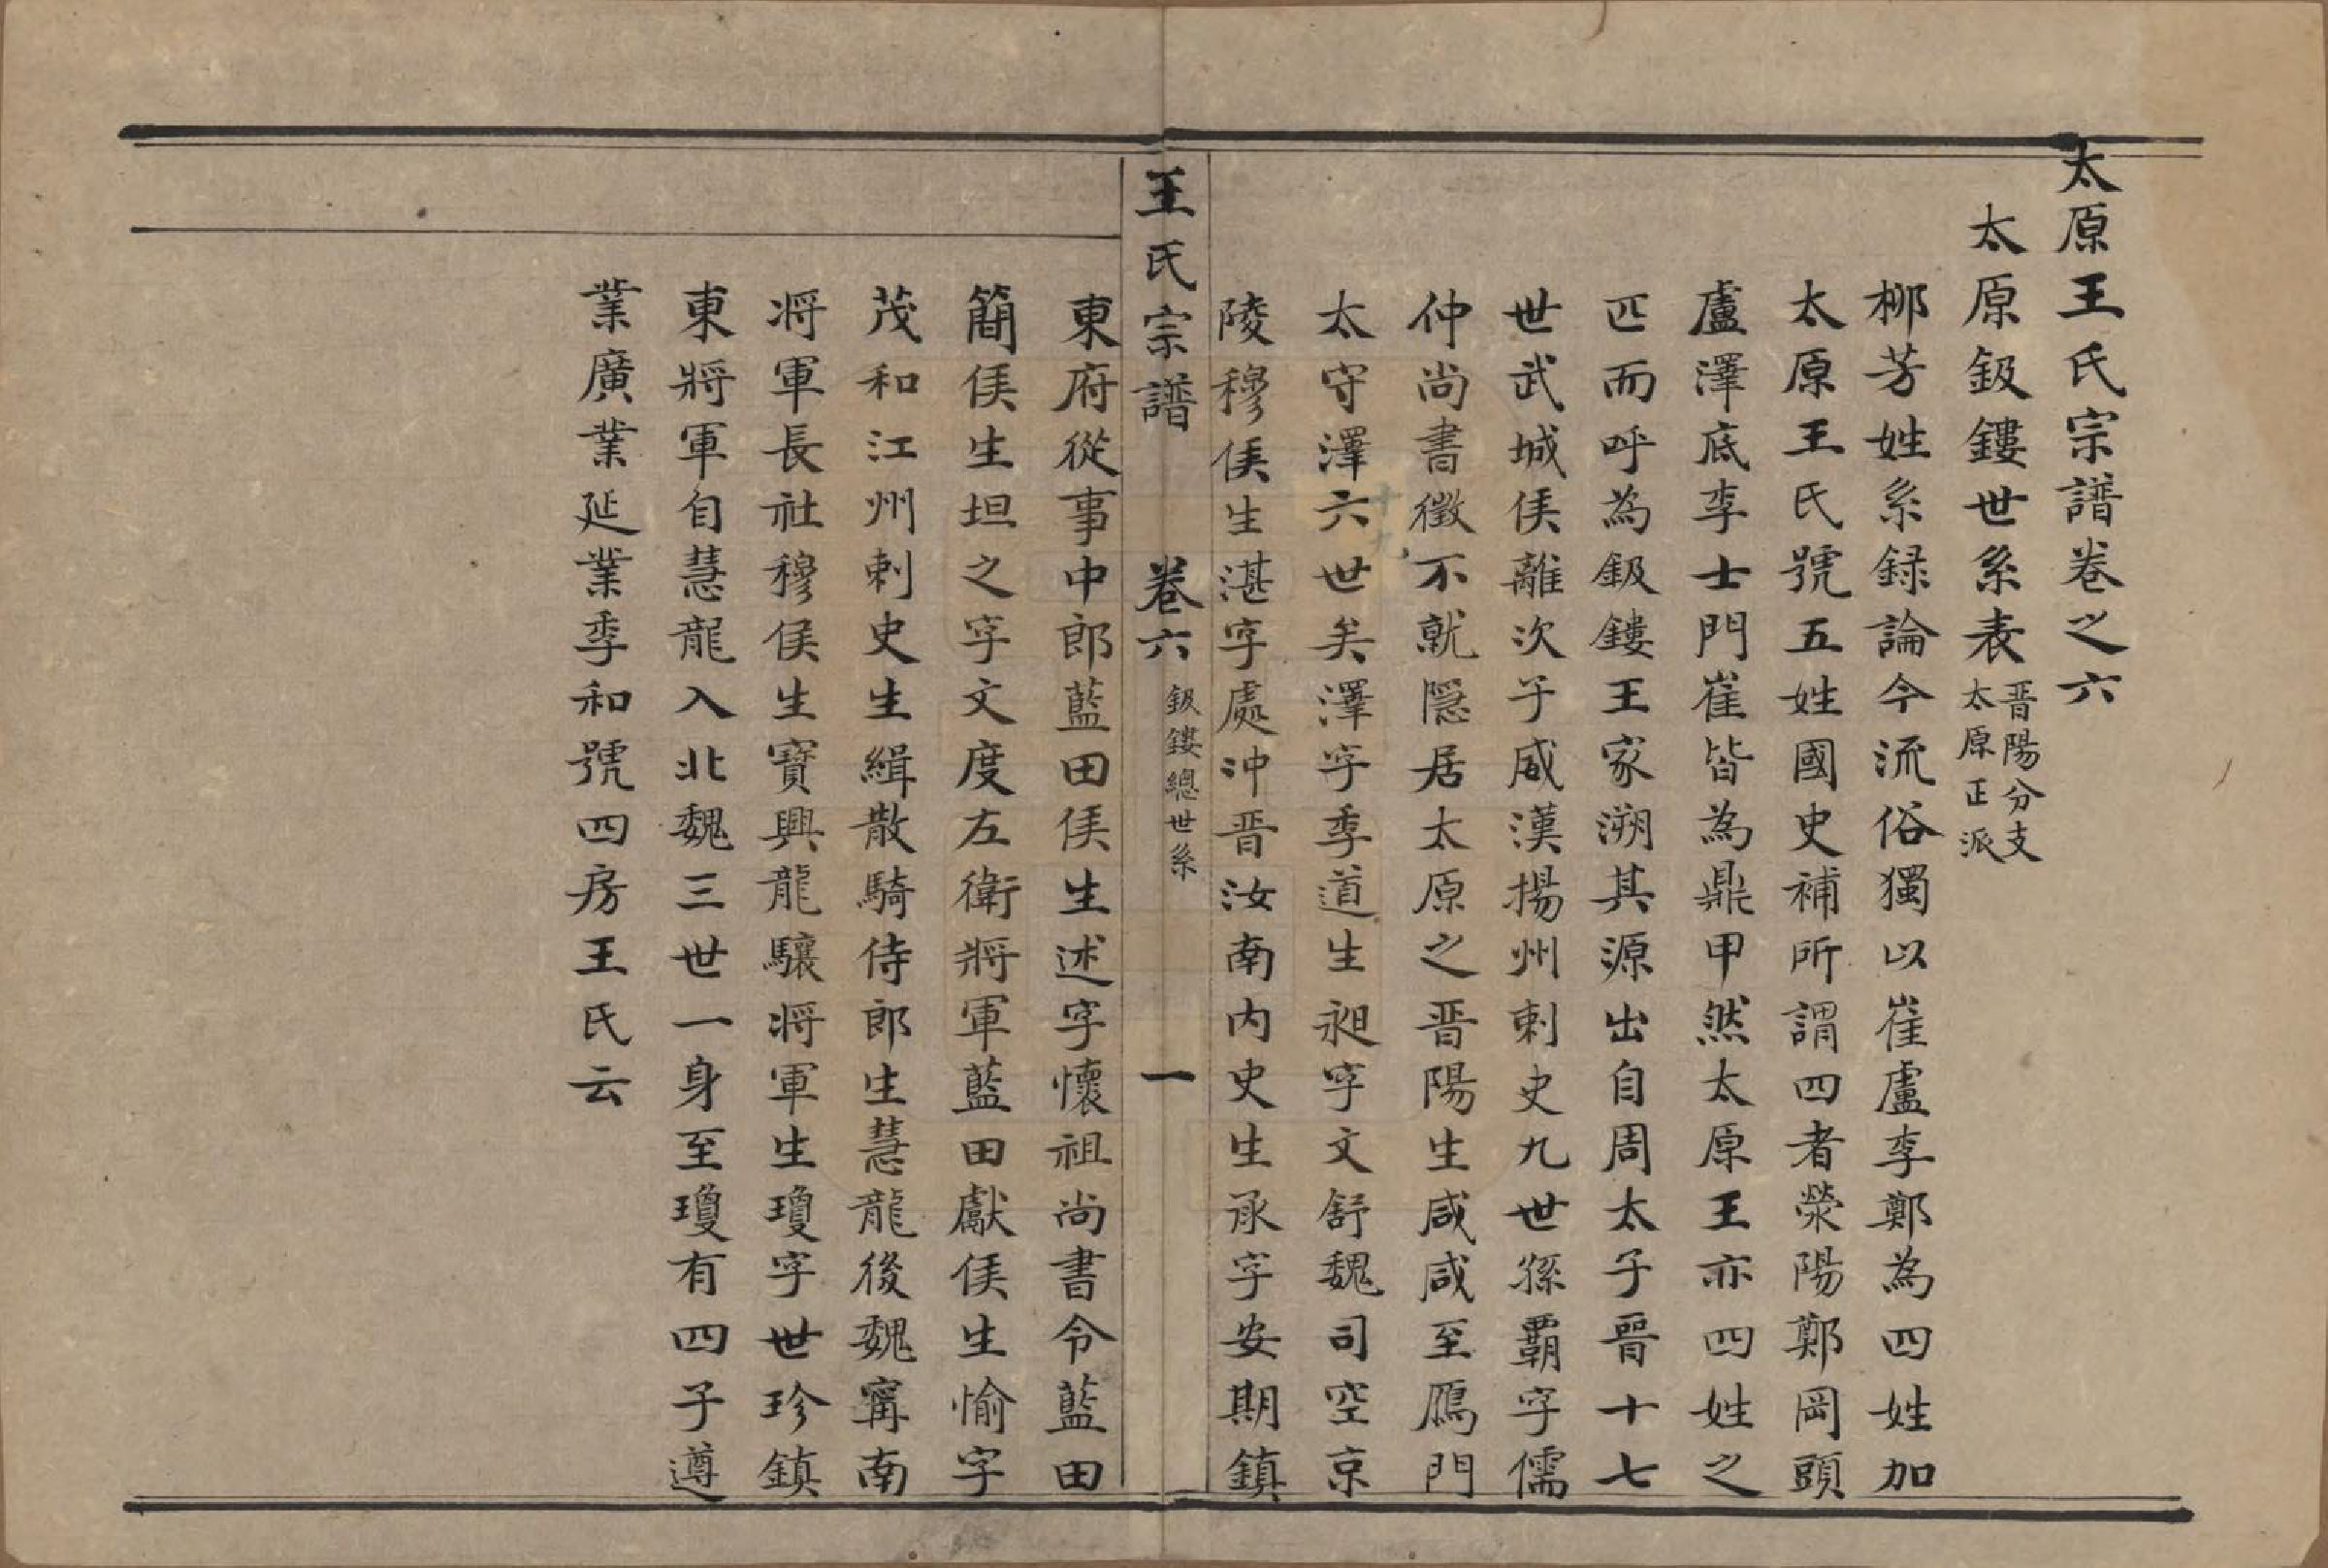 太原王氏宗譜卷之六
太原鈒鏤世系表 晋陽分支 太原正派
柳芳姓系録論今流俗獨以崔盧李鄭為四姓加
太原王氏號五姓國史補所謂四者滎陽鄭岡頭
盧澤底李士門崔皆為鼎甲然太原王亦四姓之
匹而呼為鈒鏤王家溯其源出自周太子晉十七
世武城侯離次子威漢揚州刺史九世孫覇字儒
仲尚書徵不就隱居太原之晋陽生咸咸至鴈門
太守澤六世矣澤字季道生昶字文舒魏司空京
陵穆侯生湛字處沖晋汝南内史生承字安期鎮
王氏宗譜 卷六 鈒鏤總世系 一
東府從事中郎藍田侯生述字懷祖尚書令藍田
簡侯生坦之字文度左衛將軍藍田獻侯生愉字
茂和江州刺史生緝散騎侍郎生慧龍後魏寗南
將軍長社穆侯生寶興龍驤將軍生瓊字世珍鎮
東將軍自慧龍入北魏三世一身至瓊有四子遵
業廣業延業季和號四房王氏云
十九